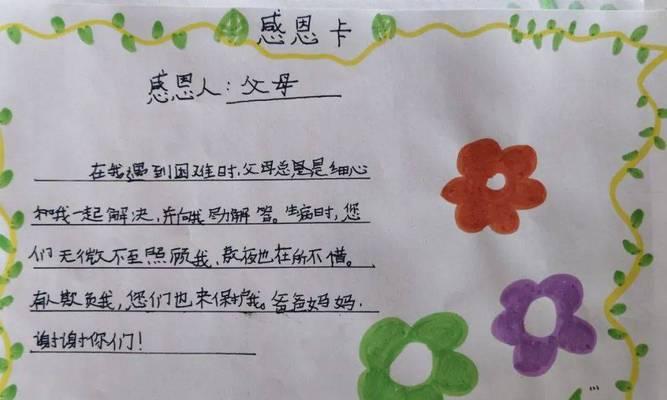 感恩卡
感恩人:父母
在我遇到困难时,父母总是细心
和我一起解决,并向我解答。生病时,您
们无微不至照顾我,熬夜也在所不惜。
有人欺负我,您们也来保护我。爸爸妈妈,
谢谢你们!